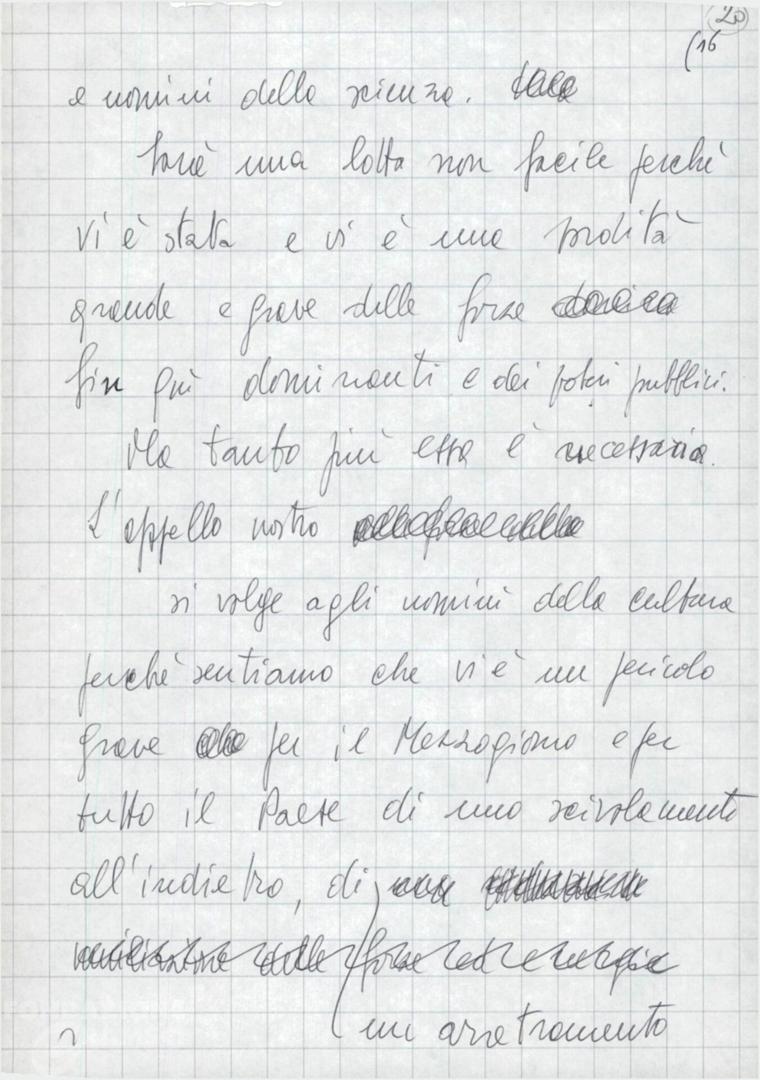 20
(16
e uomini della scienza.
Sarà una lotta non facile perché
vi è stata e vi è una
grande e grave delle forze
fin qui dominanti e dei poteri pubblici.
Ma tanto più essa è necessaria.
L'appello nostro
si volge agli uomini della cultura
perché sentiamo che vi è un pericolo
grave per il Mezzogiorno e per
tutto il Paese di uno scivolamento
all'indietro, di
un arretramento